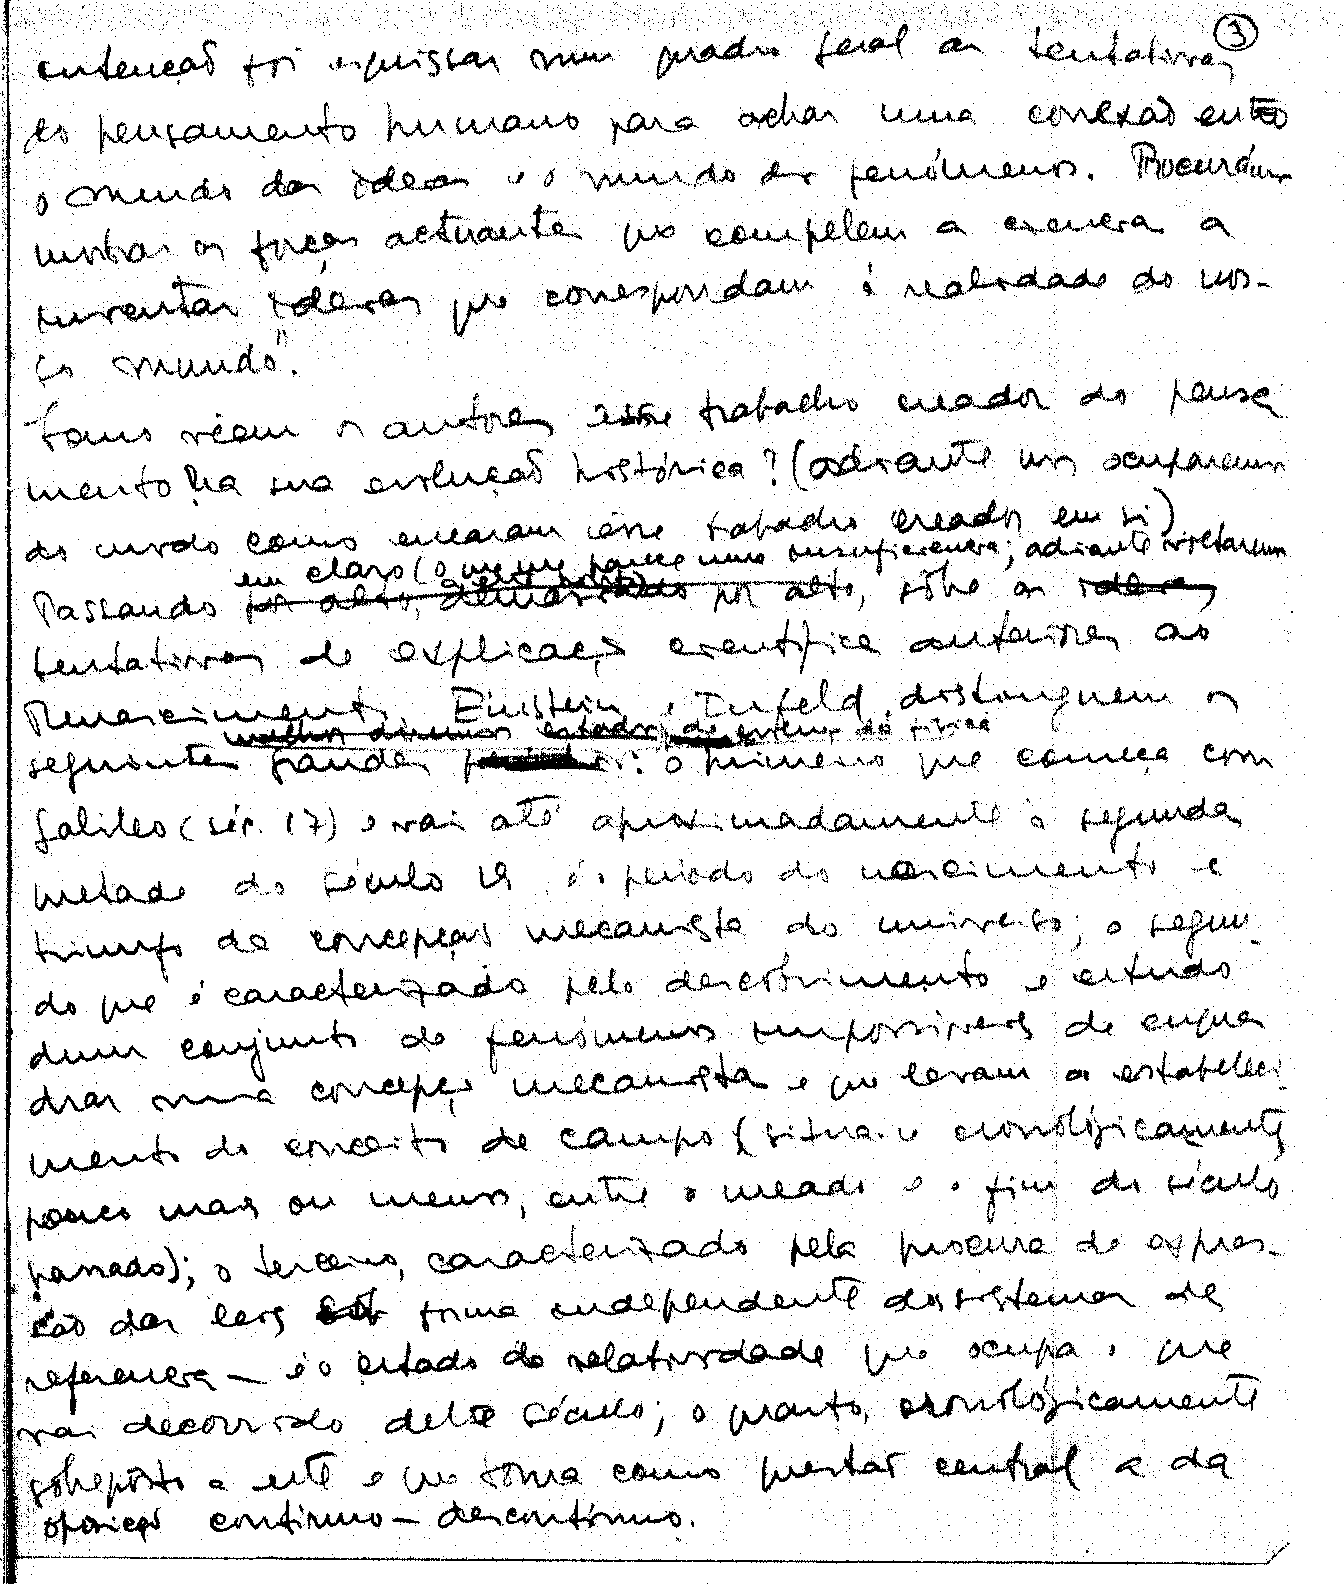 3
entenção foi esquissar num quadro geral as tentativas
do pensamento humano para achar uma conexão entre
o mundo das ideias e o mundo dos fenómenos. Procurám.
mostrar as forças actuantes que compelem a ciencia a
inventar ideias que correspondam á realidade do nos-
so mundo".
Como vêem os autores êste trabalho creador do pensa
mento na sua evolução histórica? (adiante nos ocuparemos
do modo como encaram êsse trabalho creador em si)
em claro (o que me parece uma insuficiencia; adiante voltaremos
Passando por alto, sôbre as ideias
tentativas de explicação cientifica anteriores ao
Renascimento, Einstein e Infeld distinguem os
melhor diremos estados de da física
seguintes grandes : o primeiro que começa com
Galileo (séc. 17) e vai até aproximadamente á segunda
metade do século 19 é o periodo do nascimento e
triunfo da concepção mecanista do universo; o segun-
do que é caracterizado pelo descobrimento e estudo
dum conjunto de fenómenos impossiveis de enqua
drar numa concepção mecanista e que levam ao estabeleci
mento do conceito de campo (situa-se cronológicamente,
pouco mais ou menos, entre o meado e o fim do século
passado); o terceiro, caracterizado pela procura de expres-
são das leis sob forma independente dos sistemas de
referencia — é o estado da relatividade que ocupa o que
vai decorrido deste século; o quarto, cronológicamente
sobreposto a este e que toma como questão central a da
oposição continuo — descontinuo.